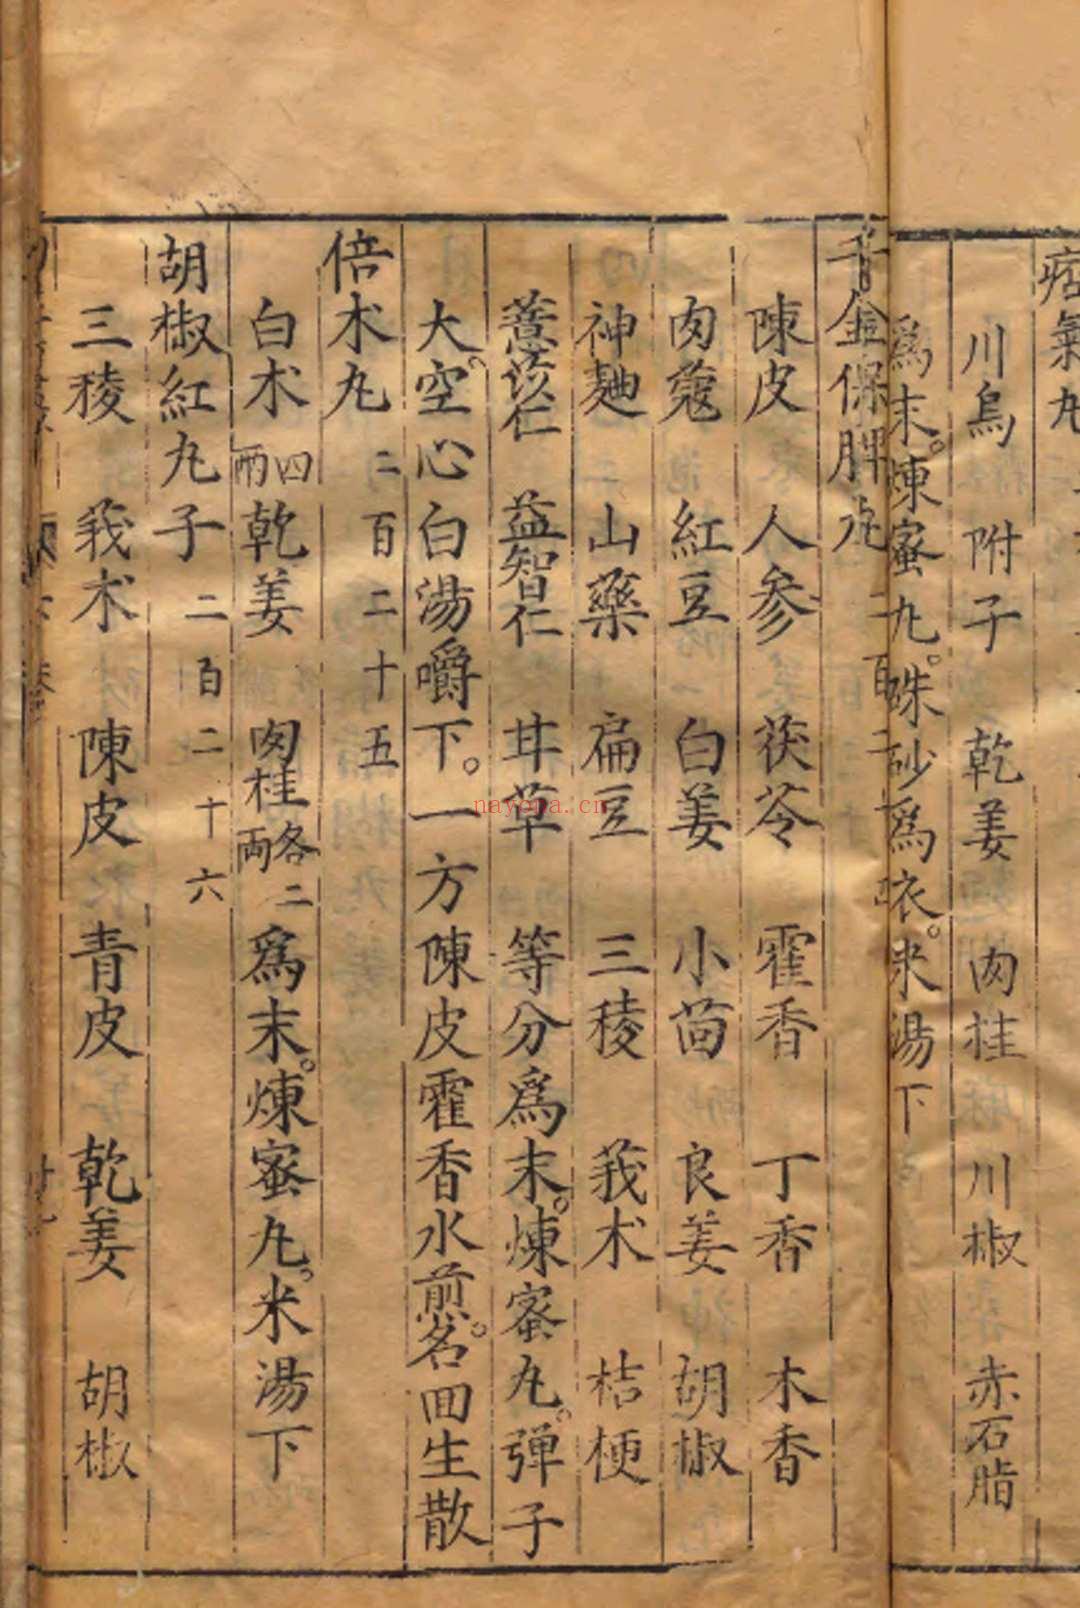 痞氣丸
川烏　附子　乾姜　肉桂　川椒　赤石脂
爲末。煉蜜丸。硃砂爲衣。米湯下
千金保脾丸　二百二十
陳皮　人參　茯苓　霍香　丁香　木香
肉蔻　紅豆　白姜　小茴　良姜　胡椒
神麯　山藥　扁豆　三稜　莪朮　桔梗
薏苡仁　益智仁　甘草　等分爲末。煉蜜丸。彈子
大。空心白湯嚼下。一方陳皮霍香水煎。名回生散
倍朮丸　二百二十五
白朮四兩　乾姜　肉桂各二兩　爲末。煉蜜丸。米湯下
胡椒紅丸子　二百二十六
三稜　莪朮　陳皮　青皮　乾姜　胡椒
nayona.cn